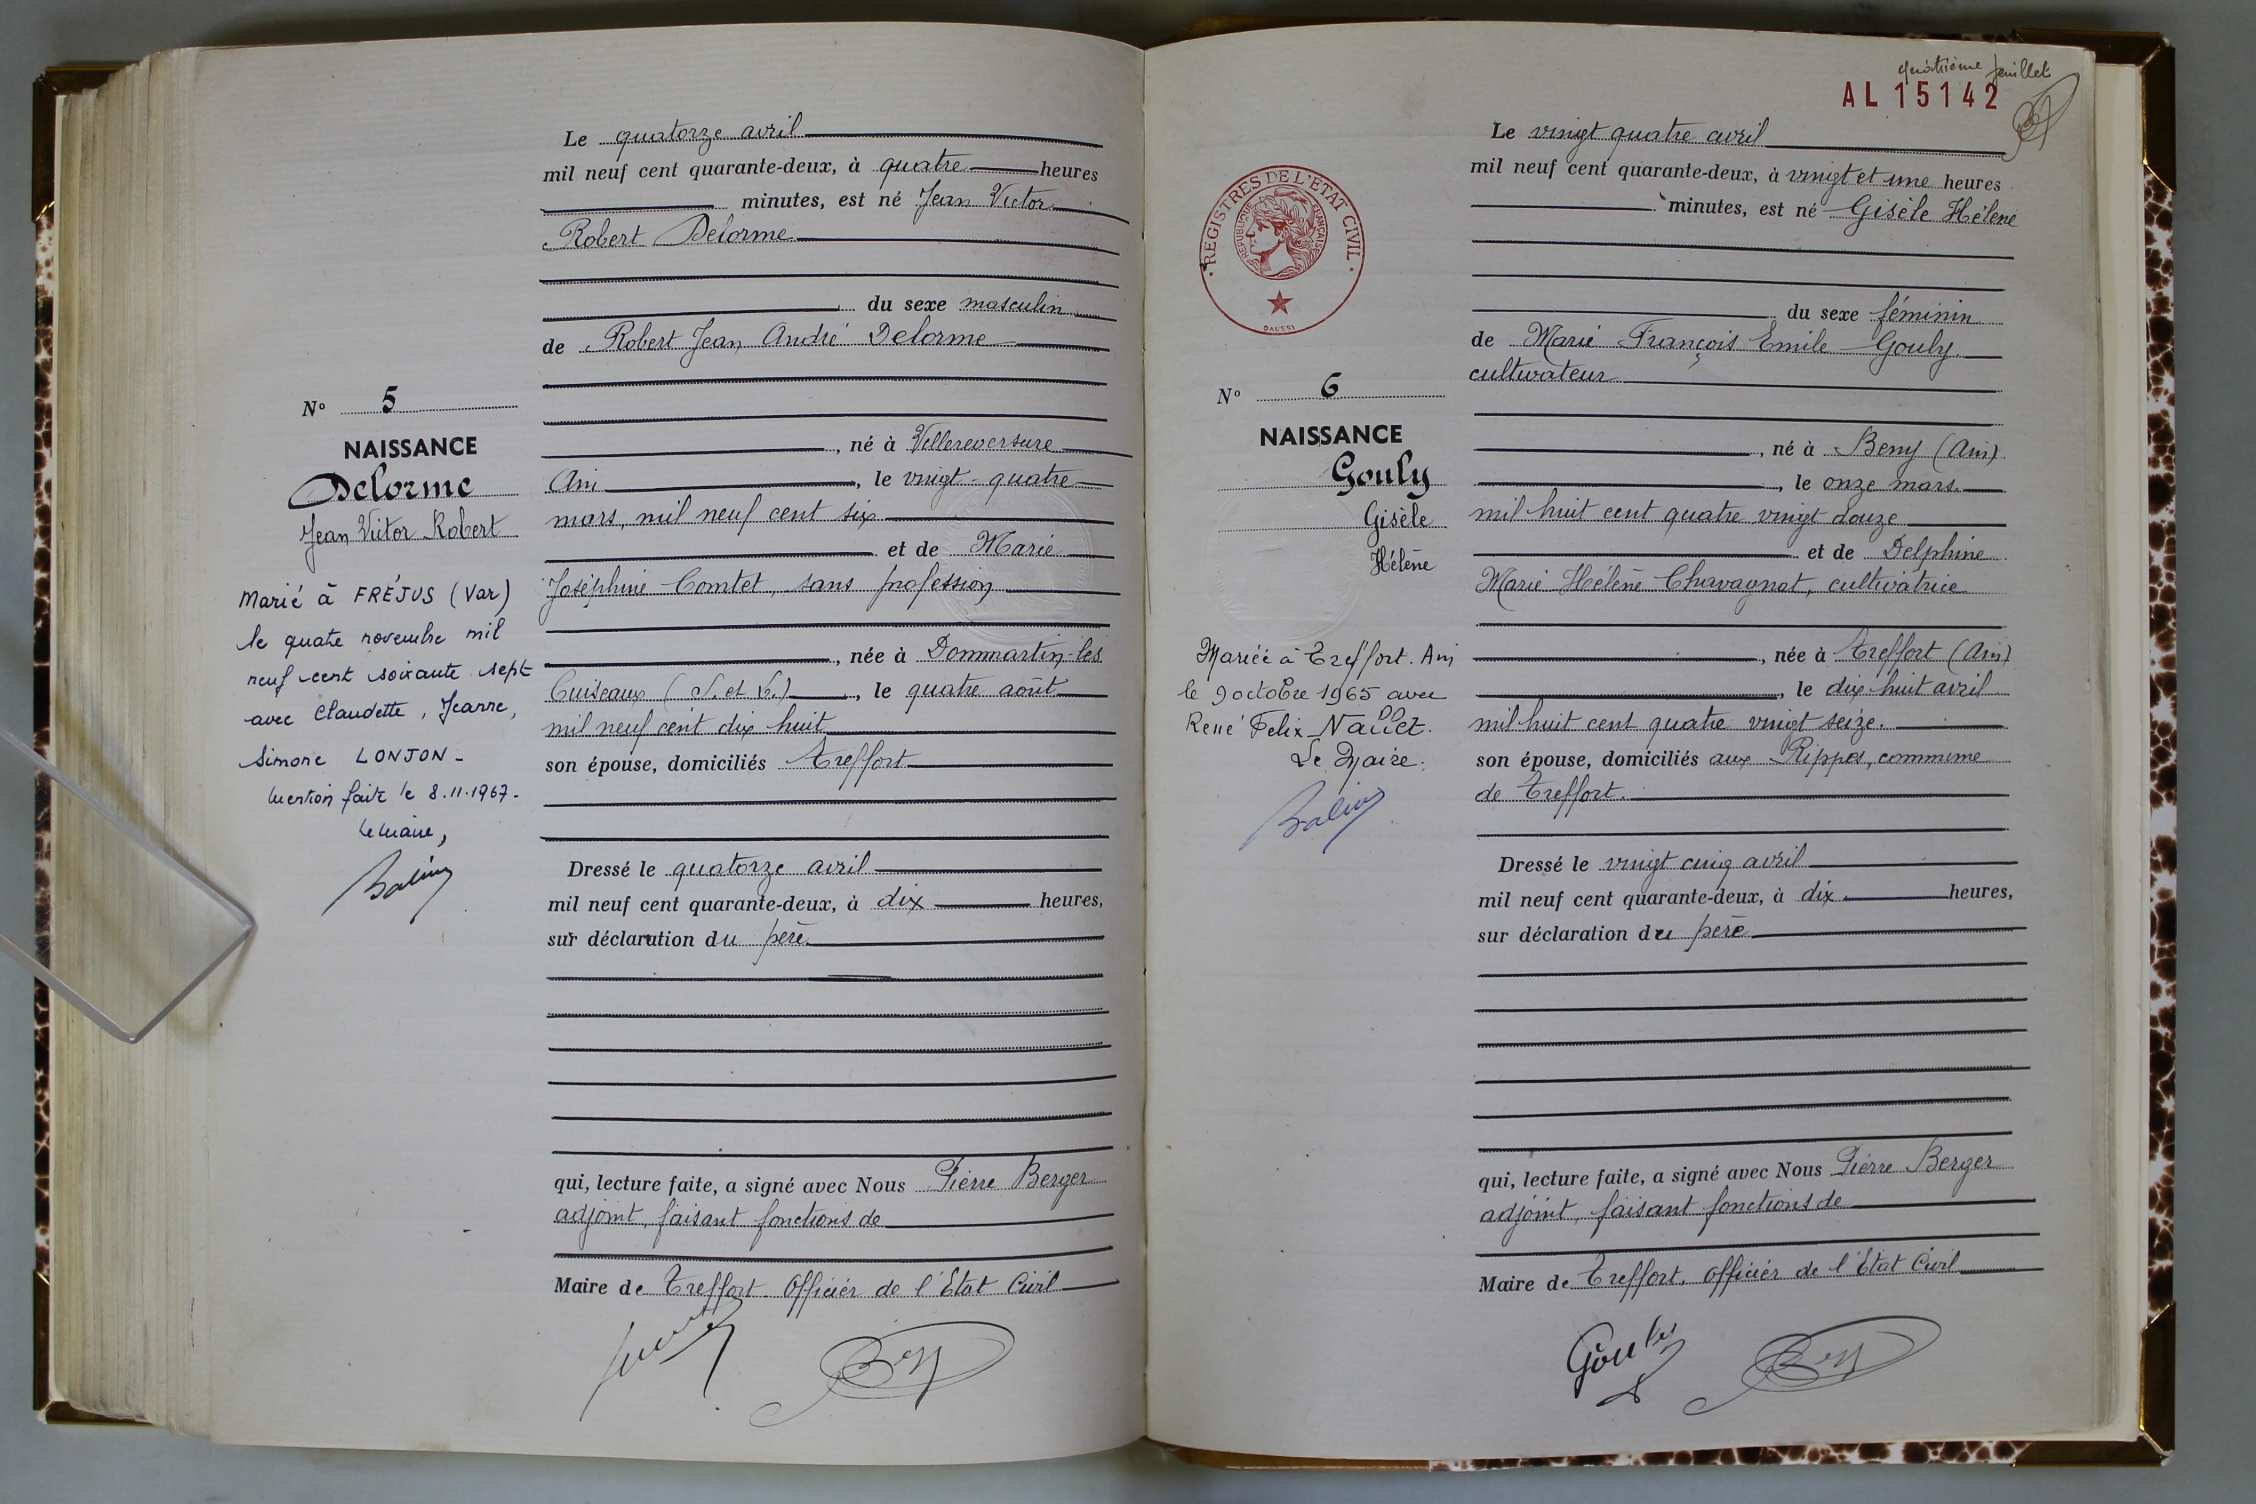 Le quatorze avril
mil neuf cent quarante-deux, à quatre heures
minutes, est né Jean Victor
Robert Delorme
du sexe masculin
de Robert Jean André Delorme
né à Villereversure
Ain, le vingt-quatre
mars, mil neuf cent six
et de Marie
Joséphine Comtet, sans profession
, née à Dommartin-les
Cuiseaux (S. et L.), le quatre août
mil neuf cent dix huit
son épouse, domiciliés Treffort
Dressé le quatorze avril
mil neuf cent quarante-deux, à dix heures,
sur déclaration du père
qui, lecture faite, a signé avec Nous Pierre Berger
adjoint, faisant fonctions de
Maire de Treffort. Officier de l'Etat Civil
No 5
NAISSANCE
Delorme
Jean Victor Robert
Marié à FRÉJUS (Var)
le quatre novembre mil
neuf cent soixante sept
avec Claudette, Jeanne,
Simone LONJON -
Mention faite le 8.11.1967.
Le Maire,
quatrième feuillet
AL 15142
Le vingt quatre avril
mil neuf cent quarante-deux, à vingt et une heures
minutes, est né Gisèle Hélène
du sexe féminin
de Marie François Emile Gouly
cultivateur
, né à Beny (Ain)
, le onze mars
mil huit cent quatre vingt douze
et de Delphine
Marie Hélène Chavagnat, cultivatrice
, née à Treffort (Ain)
, le dix huit avril
mil huit cent quatre vingt seize.
son épouse, domiciliés aux Rippes, commune
de Treffort.
Dressé le vingt cinq avril
mil neuf cent quarante-deux, à dix heures,
sur déclaration du père
qui, lecture faite, a signé avec Nous Pierre Berger
adjoint, faisant fonctions de
Maire de Treffort. Officier de l'Etat Civil
Gouly
REGISTRES DE L'ETAT CIVIL
REPUBLIQUE FRANÇAISE
No 6
NAISSANCE
Gouly
Gisèle
Hélène
Mariée à Treffort. Ain
le 9 octobre 1965 avec
René Felix Nallet.
Le Maire.